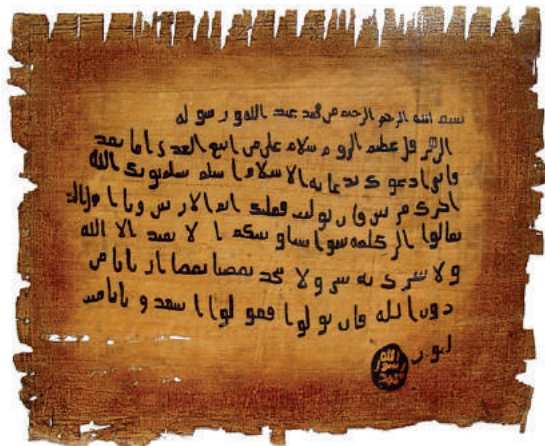 بسم الله الرحمن الرحيم من محمد عبد الله ورسوله
الى هرقل عظيم الروم سلام على من اتبع الهدى اما بعد
فانى ادعوك بدعاية الاسلام اسلم تسلم يوتك الله
اجرك مرتين فان توليت فعليك اثم الاريسين ويا اهل
تعالوا الى كلمة سوا بيننا وبينكم ا لا نعبد الا الله
ولا نشرك به شيا ولا يتخذ بعضنا بعضا اربابا من
دون الله فان تولوا فقولوا اشهدوا بانا مس
لمون
الله
رسول
محمد